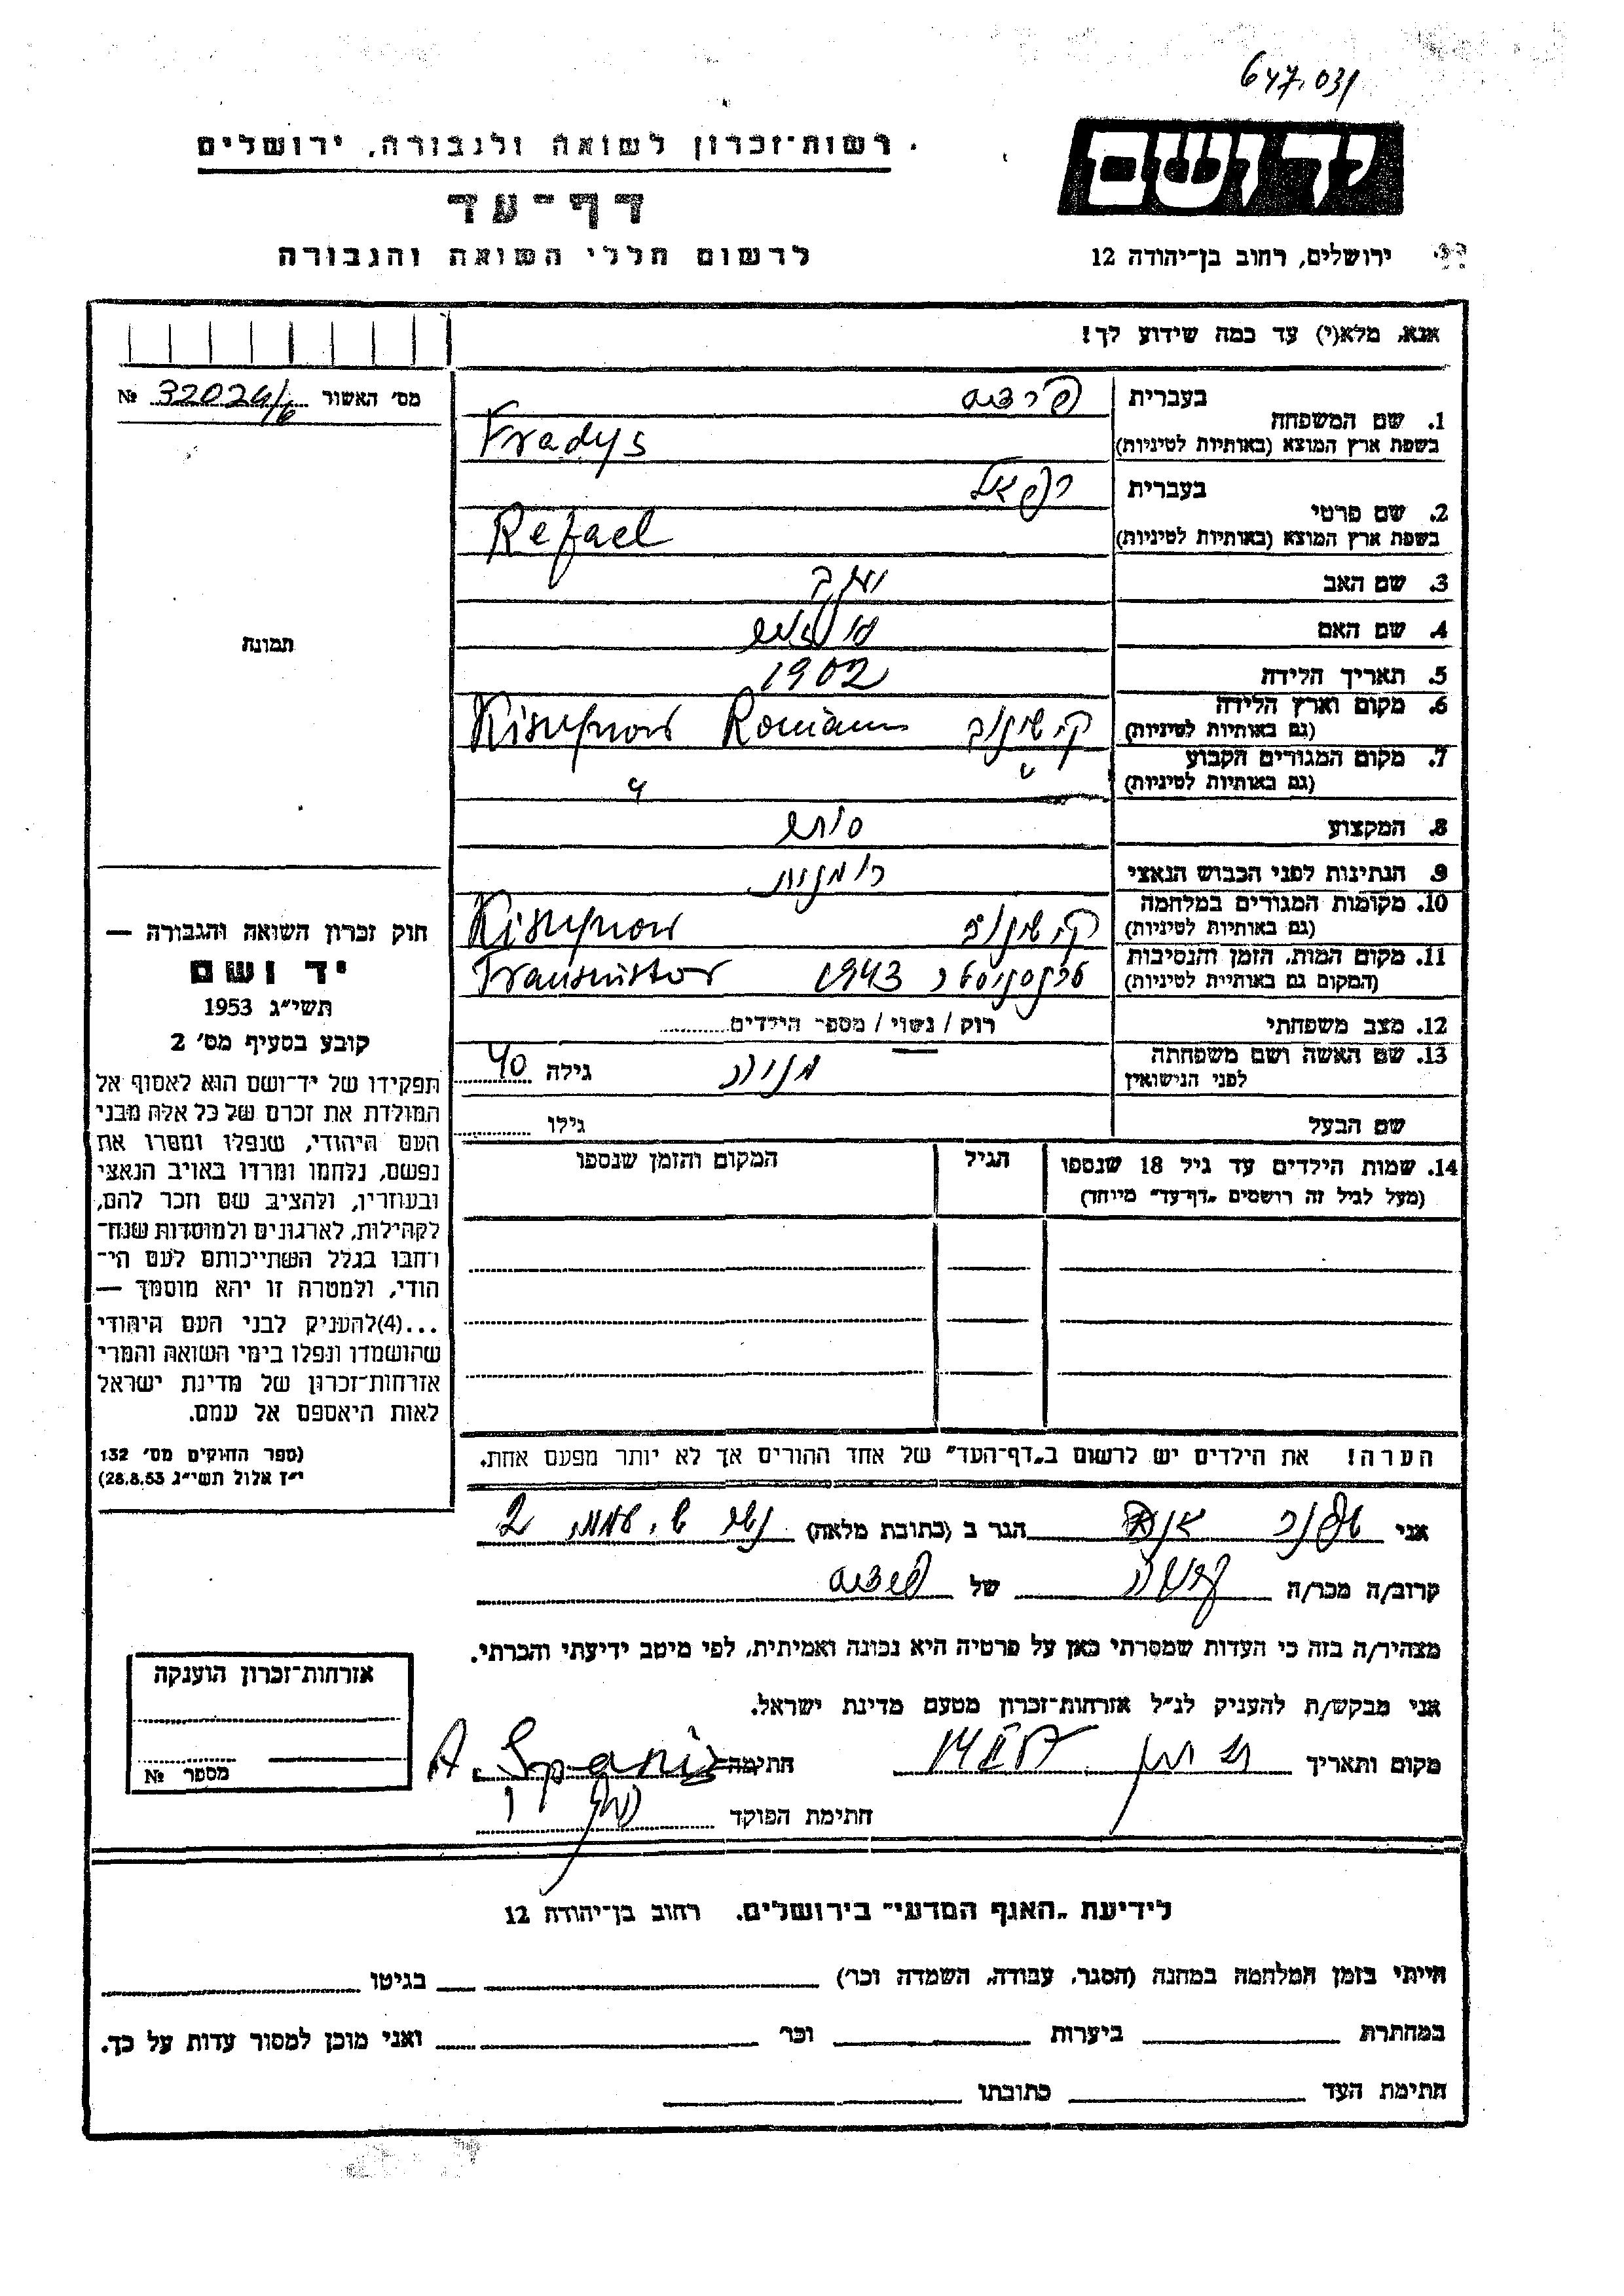 647.031
יד ושם
רשות־זכרון לשואה ולגבורה, ירושלים
דף־עד
לרשום חללי השואה והגבורה
ירושלים, רחוב בן־יהודה 12
אנא, מלא(י) עד כמה שידוע לך!
מס׳ האשור 32024/6 №
1. שם המשפחה
בעברית
בשפת ארץ המוצא (באותיות לטיניות) Fradys
2. שם פרטי
בעברית רפאל
בשפת ארץ המוצא (באותיות לטיניות) Refael
3. שם האב
4. שם האם
5. תאריך הלידה 1902
6. מקום וארץ הלידה
(גם באותיות לטיניות) קישינוב
7. מקום המגורים הקבוע
(גם באותיות לטיניות) " "
8. המקצוע סוחר
9. הנתינות לפני הכבוש הנאצי רומנית
10. מקומות המגורים במלחמה
(גם באותיות לטיניות) קישינוב
11. מקום המות, הזמן והנסיבות
(המקום גם באותיות לטיניות) טרנסניסטר 1943 Transnistor
12. מצב משפחתי רווק / נשוי / מספר הילדים
13. שם האשה ושם משפחתה
לפני הנישואין גילה 40
שם הבעל גילו
14. שמות הילדים עד גיל 18 שנספו
(מעל לגיל זה רושמים „דף־עד״ מיוחד)
הגיל
המקום והזמן שנספו
הערה! את הילדים יש לרשום ב„דף־העד״ של אחד ההורים אך לא יותר מפעם אחת.
תמונה
חוק זכרון השואה והגבורה —
יד ושם
תשי״ג 1953
קובע בסעיף מס׳ 2
תפקידו של יד־ושם הוא לאסוף אל
המולדת את זכרם של כל אלה מבני
העם היהודי, שנפלו ומסרו את
נפשם, נלחמו ומרדו באויב הנאצי
ובעוזריו, ולהציב שם וזכר להם,
לקהילות, לארגונים ולמוסדות שנח־
רחבו בגלל השתייכותם לעם הי־
הודי, ולמטרה זו יהא מוסמך —
...(4)להעניק לבני העם היהודי
שהושמדו ונפלו בימי השואה והמרי
אזרחות־זכרון של מדינת ישראל
לאות היאספם אל עמם.
(ספר החוקים מס׳ 132
י״ז אלול תשי״ג 28.8.53)
אני הגר ב (כתובת מלאה) 2
קרוב/ה מכר/ה של
מצהיר/ה בזה כי העדות שמסרתי כאן על פרטיה היא נכונה ואמיתית, לפי מיטב ידיעתי והכרתי.
אני מבקש/ת להעניק לנ״ל אזרחות־זכרון מטעם מדינת ישראל.
מקום ותאריך חתימה A. Spanir
חתימת הפוקד
אזרחות־זכרון הוענקה
מספר №
לידיעת „האגף המדעי״ בירושלים, רחוב בן־יהודה 12
הייתי בזמן המלחמה במחנה (הסגר, עבודה, השמדה וכו׳) בגיטו
במחתרת ביערות וכו׳ ואני מוכן למסור עדות על כך.
חתימת העד כתובתו